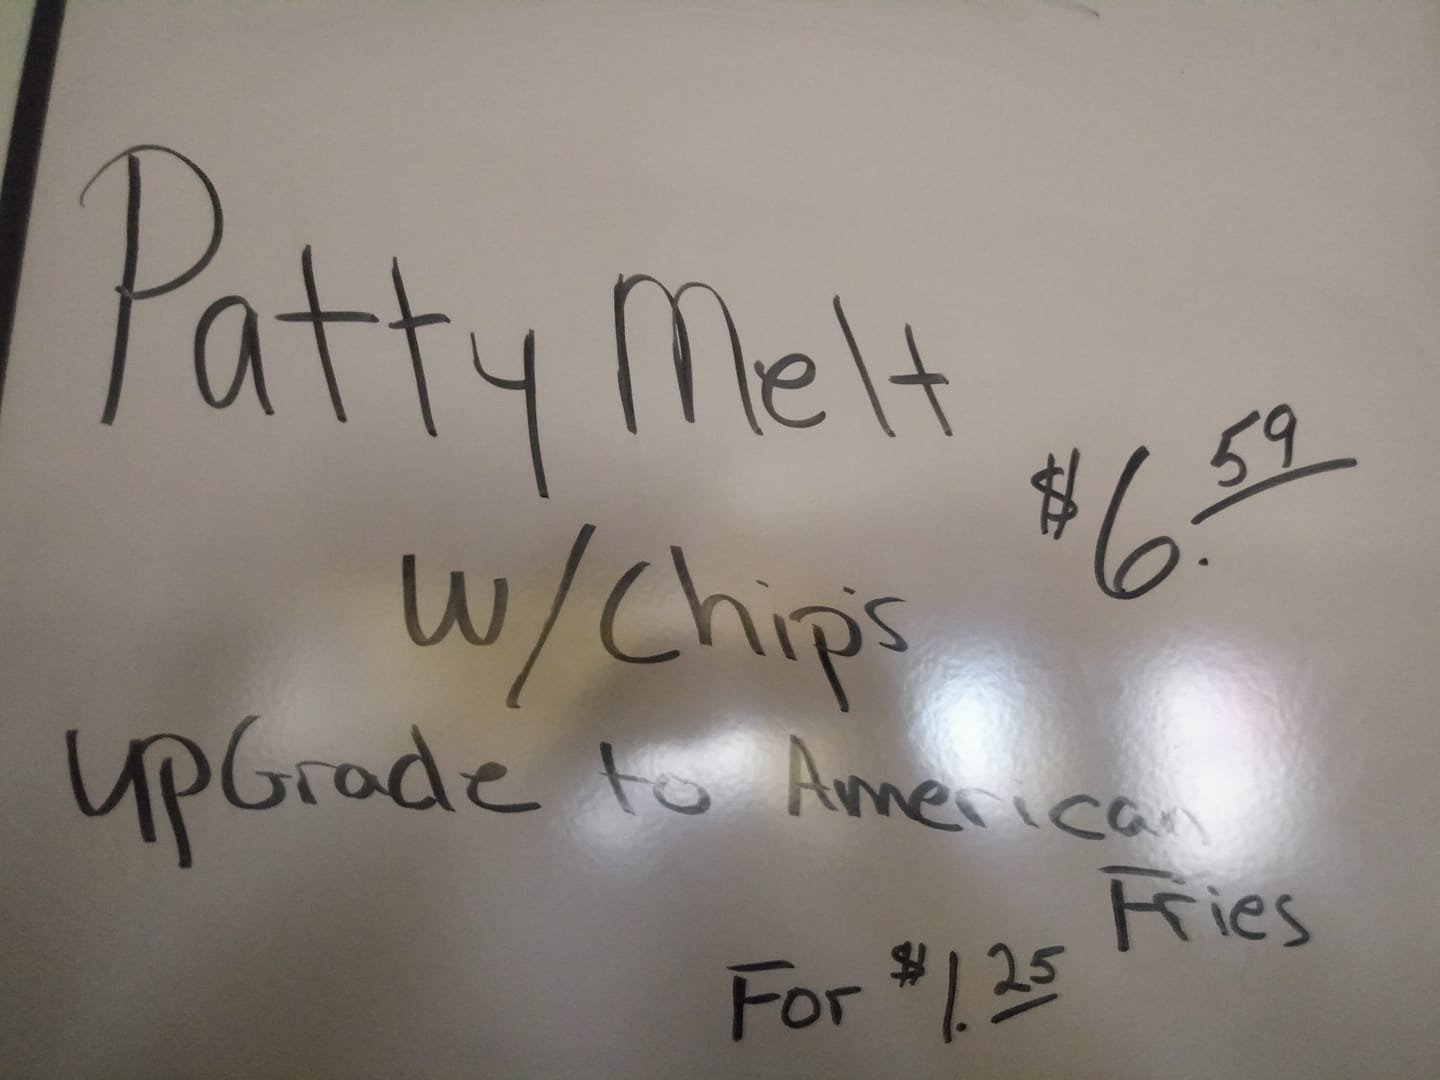 Patty Melt
$6.59
W/Chip's
upGrade to American
Fries
For $1.25